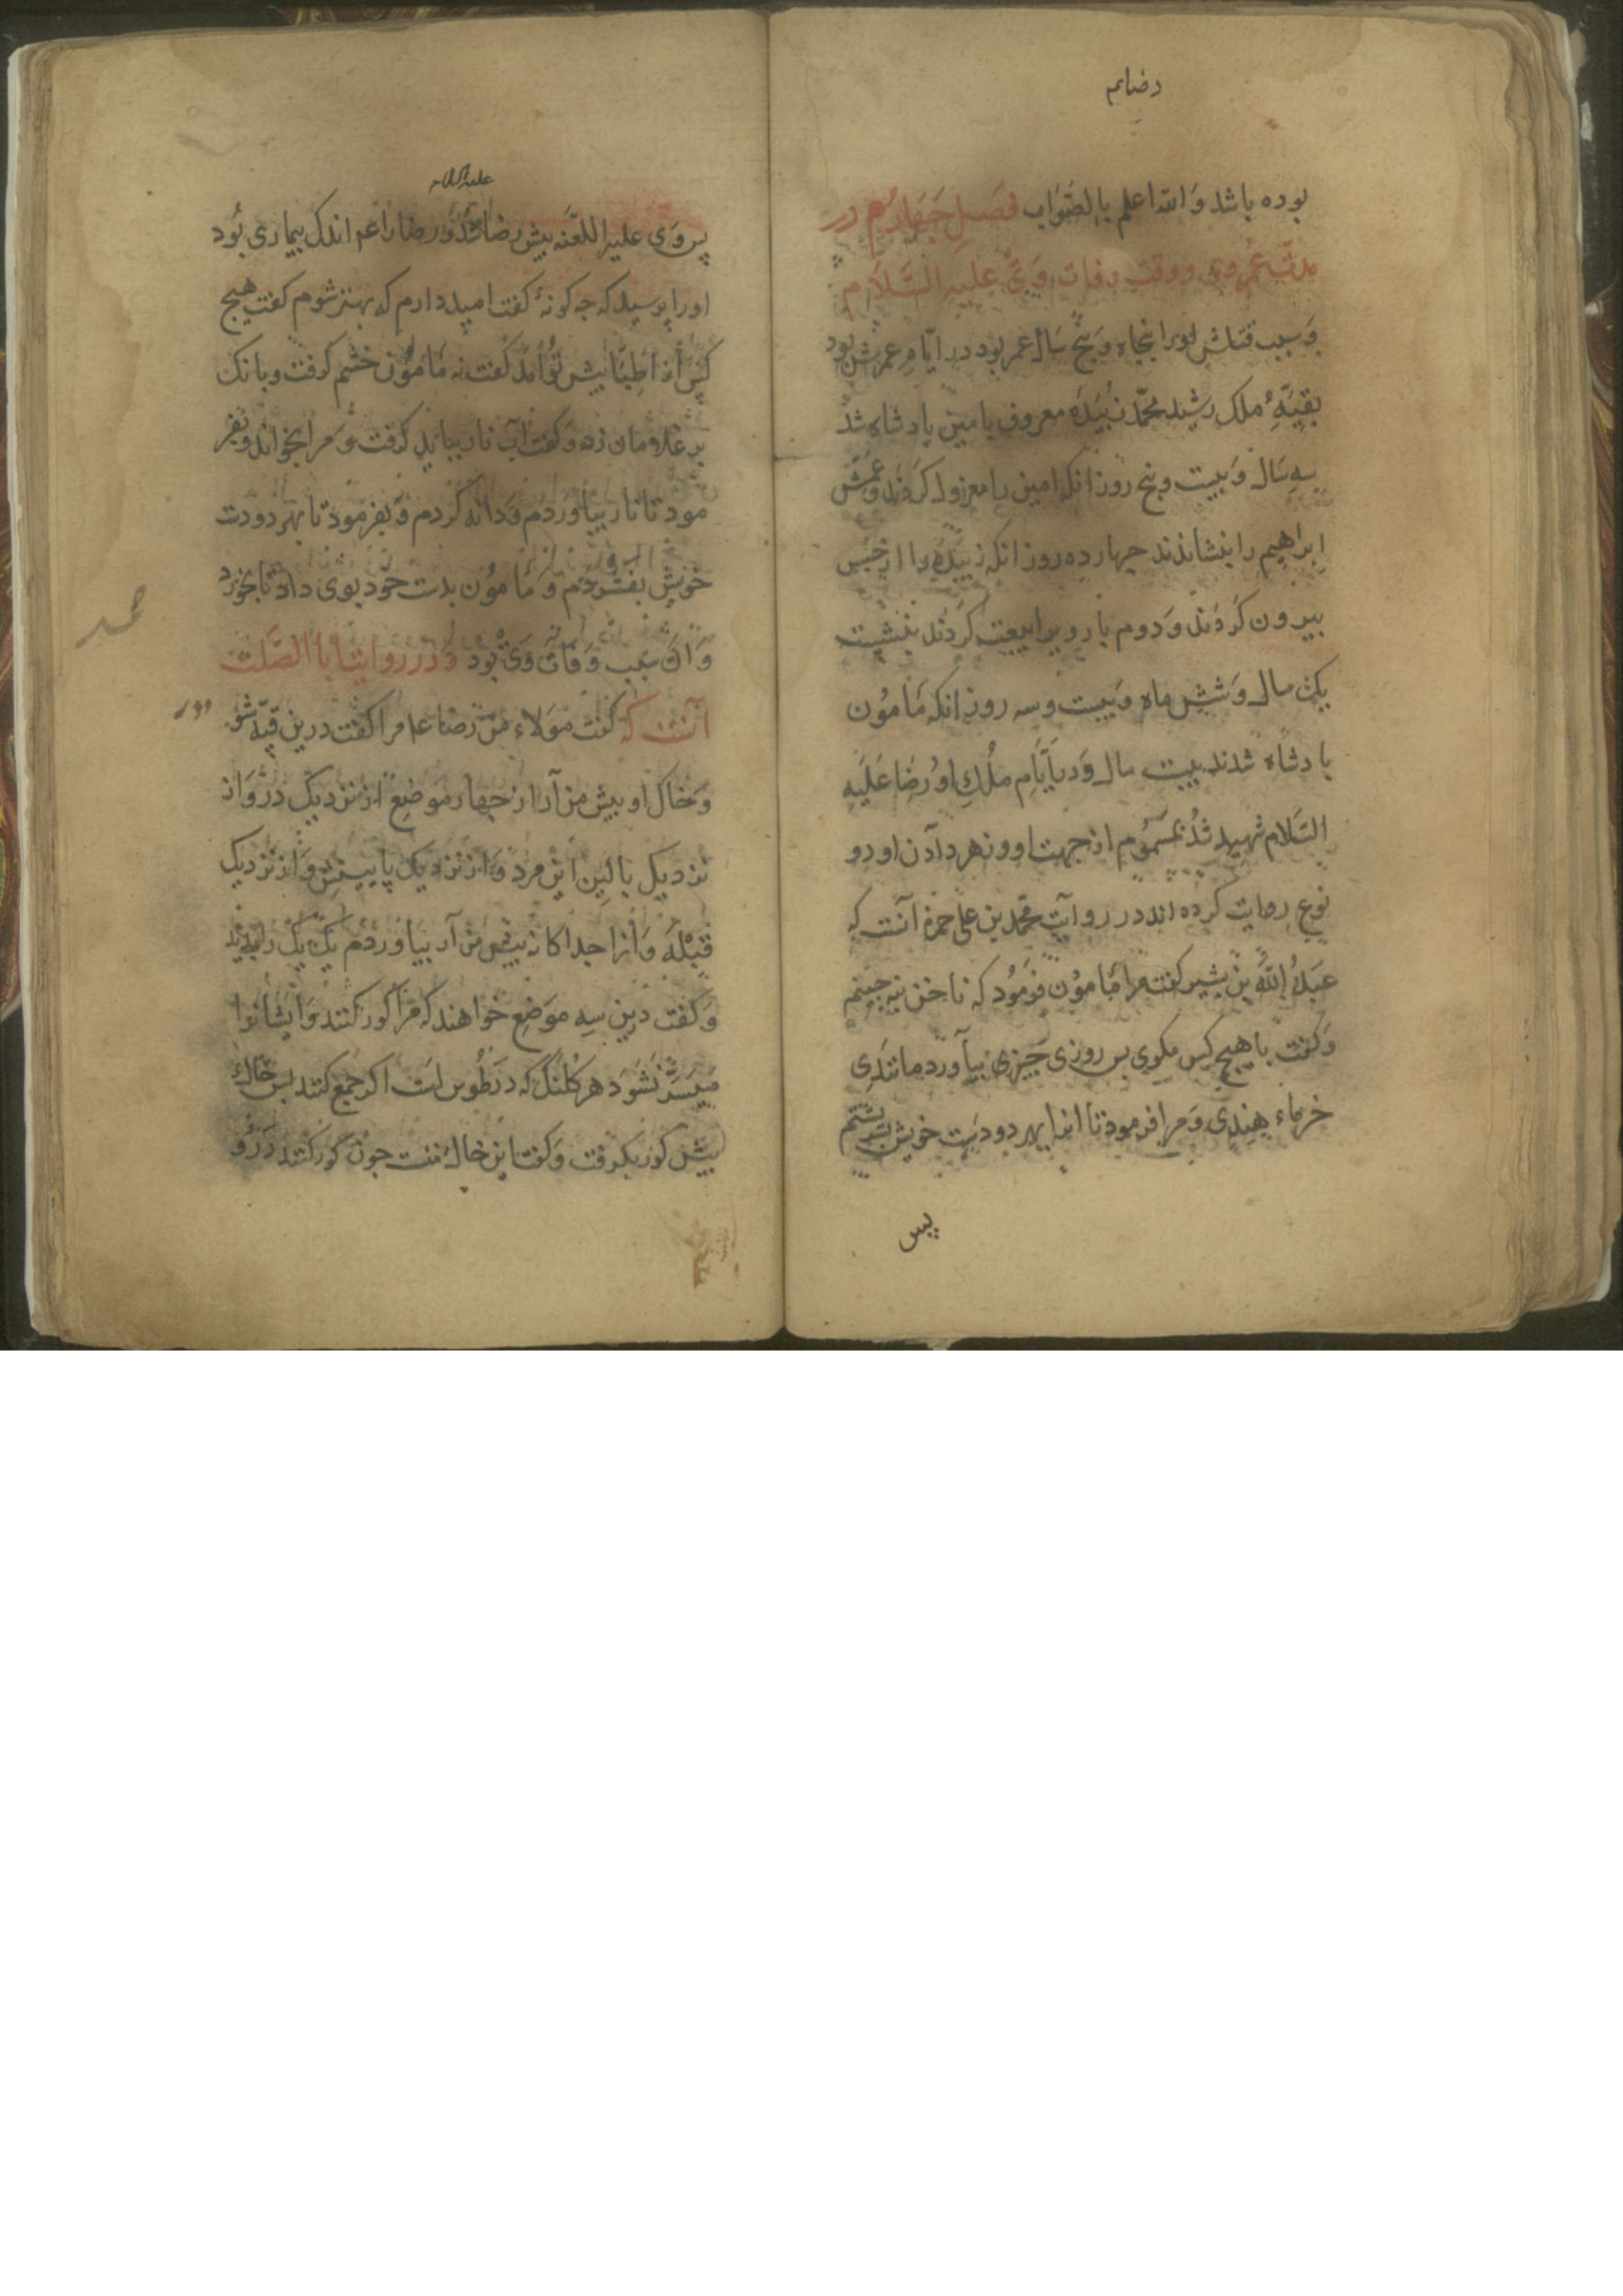 رضایم
بوده باشد وَ الله اعلم بِالصَّوَاب فصَلِ چَهَارُم در
مدّت عُمر وی و وقت وفات وَیْ علیه السَّلَام
وَ سبب قتاش او را پنجاه وَ پنج سَال عمر بود در ایّامِ عمرش بود
بقیَّهِٔ ملک رشید محمّد زبَیْدَه معروف بامین پادشاه شد
سِه سَال وَ بیست و پنج روز انکه امین را معزول کردند وَ عَمّش
اِبراهیم را بنشاندند چهارده روز انکه زبَیْدَه را از حَبس
بیرون کَردَند وَ دوم بار ویرا بیعت کَردند بنشست
یک سال وَ ششِ ماه وَ بیست و سه روز انکه مَامُون
پادشاه شدند بیست سال وَ در اَیَّامِ مُلْكِ اوُ رضَا عَلَیهِ
السَّلام شهید شُد بمَسمُوم از جهت او و زهر دادن او دو
نوع روایت کرده‌اند در روایت محمّد بن علی حمزه آنست که
عَبدُ اللّٰه بن بشیر کفت مرا مَامُون فرمُود که ناخن نه چینم
وَ کفت با هیچ کَس مکوی پس روزی چِیزی بیآورد مانندِی
خرماء هِندِی وَ مرا فرمود تا انرا بهر دو دست خویش بسرشتم
پس
علیه السلام
پس وَی علیه اللعَنه پیش رضا شُد وُ رضا را عم اندک بیماری بُود
او را پرسید که چه کونهٔ کفت امید دارم که بهتر شوم کفت هیچ
کس از اطِبَّا پیش توُ آمَد کفت نه مَامُون خشم کرفت و بانک
بر غلامان زد وَ کفت آب نار بباید کرفت وَ مرا بخواند و بفر
مود تا نار بیاوَردَم وَ دانه کَردم وَ بفرمود تا بهر دو دست
خویش بفشردَم وَ مَامُون بدست خَود بوی داد تا بخورد
وَ آن سَبب وَفات وَی بُود وَ در روایت ابا الصَّلت
آنست که کفت مَولَاء من رضا عم مرا کفت درین قبّه شو
وَ خاک او پیش من آر از چهار موَضِعْ از نزدیک درْوَاز
نزدیک بالِینِ این مرد وَ از نزدیک پایینش وَ از نزدیک
قِبْلَه وَ انرا جداکانه پیش من آر بیاوردَم یَک یَک را بوئید
وَ کفت درین سِه موَضِع خواهند که مَرا کور کنند وَ ایشانرا
میَسَّر نشَوَد هر کُلنک که در طُوس است اکر جمع کنند پس خاک
پیش کور بکرفت وَ کفت این خاك منست چون کور کنند دَرُو